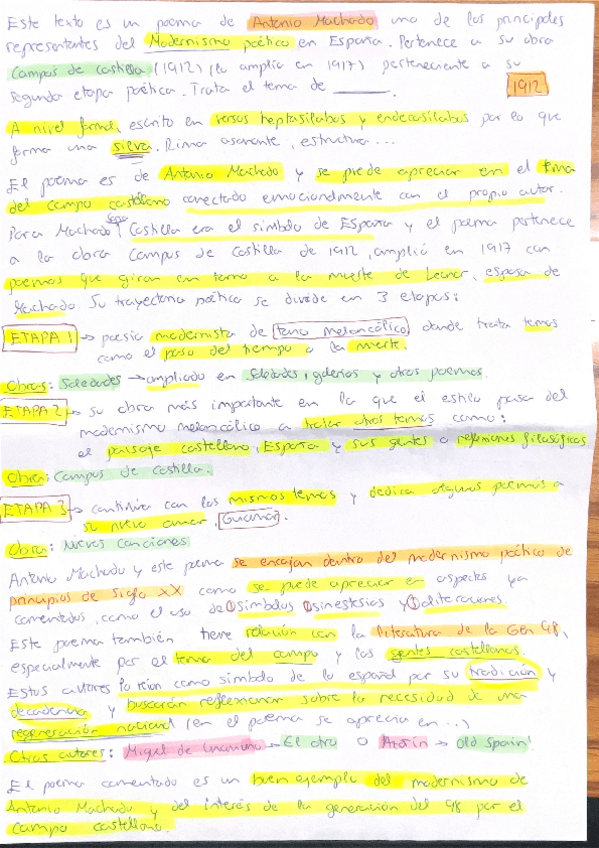 Este texto es un poema de Antonio Machado uno de los principales
representantes del Modernismo poético en España. Pertenece a su obra
Campos de Castilla (1912) (lo amplía en 1917) perteneciente a su
segunda etapa poética. Trata el tema de ______.
1912
A nivel formal, escrito en versos heptasílabos y endecasílabos por lo que
forma una silva. Rima asonante, estructura...
El poema es de Antonio Machado y se puede apreciar en el tema
del campo castellano conectado emocionalmente con el propio autor.
Para Machado, Castilla era el símbolo de España y el poema pertenece
a la obra Campos de Castilla de 1912, amplió en 1917 con
poemas que giran en torno a la muerte de Leonor, esposa de
Machado. Su trayectoria poética se divide en 3 etapas:
ETAPA 1 → poesía modernista de tono melancólico donde trata temas
como el paso del tiempo o la muerte.
Obras: Soledades → ampliado en Soledades, galerías y otros poemas.
ETAPA 2 → su obra más importante en la que el estilo pasa del
modernismo melancólico a tratar otros temas como:
el paisaje castellano, España y sus gentes o reflexiones filosóficas
Obra: Campos de Castilla.
ETAPA 3 → continúa con los mismos temas y dedica algunos poemas a
su nuevo amor, Guiomar.
Obra: Nuevas Canciones
Antonio Machado y este poema se encajan dentro del modernismo poético de
principios de siglo XX como se puede apreciar en aspectos ya
comentados, como el uso de símbolos, sinestesias y aliteraciones.
Este poema también tiene relación con la literatura de la Gen 98,
especialmente por el tema del campo y las gentes castellanas.
Estos autores lo veían como símbolo de lo español por su tradición y
decadencia y buscarán reflexionar sobre la necesidad de una
regeneración nacional (en el poema se aprecia en...)
Otros autores: Miguel de Unamuno → El otro o Azorín → Old Spain!
El poema comentado es un buen ejemplo del modernismo de
Antonio Machado y del interés de la generación del 98 por el
campo castellano.